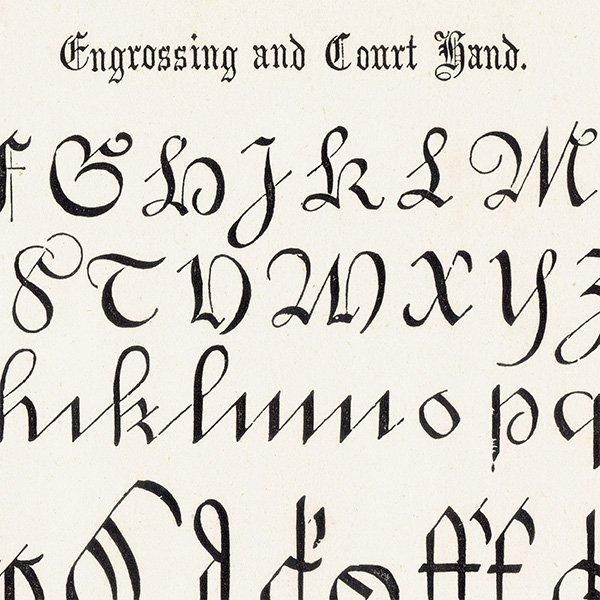 Engrossing and Court Hand.
F G H J K L M
S T U W X Y Z
h i k l m n o p q